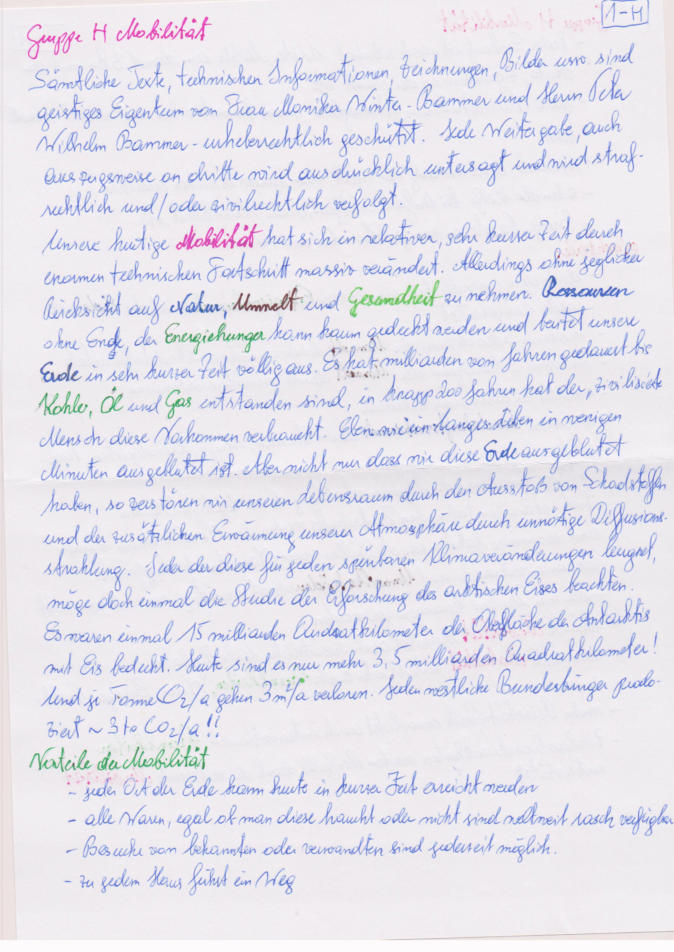 1-H
Gruppe H Mobilität
Sämtliche Texte, technischen Informationen, Zeichnungen, Bilder usw. sind
geistiges Eigentum von Frau Monika Winter-Bammer und Herrn Peter
Wilhelm Bammer - urheberrechtlich geschützt. Jede Weitergabe, auch
auszugsweise an dritte wird ausdrücklich untersagt und wird straf-
rechtlich und/oder zivilrechtlich verfolgt.
Unsere heutige Mobilität hat sich in relativer, sehr kurzer Zeit durch
enormen technischen Fortschritt massiv verändert. Allerdings ohne jeglicher
Rücksicht auf Natur, Umwelt und Gesundheit zu nehmen. Ressourcen
ohne Ende, der Energiehunger kann kaum gedeckt werden und beutet unsere
Erde in sehr kurzer Zeit völlig aus. Es hat milliarden von Jahren gedauert bis
Kohle, Öl und Gas entstanden sind, in knapp 200 Jahren hat der, zivilisierte
Mensch diese Vorkommen verbraucht. Eben wie ein langes Leben in wenigen
Minuten ausgeblutet ist. Aber nicht nur dass wir diese Erde ausgeblutet
haben, so zerstören wir unseren Lebensraum durch den Ausstoß von Schadstoffen
und der zusätzlichen Erwärmung unserer Atmosphäre durch unnötige Diffusions-
strahlung. Jeder der diese für jeden spürbaren Klimaveränderungen leugnet,
möge doch einmal die Studie der Erforschung des arktischen Eises beachten.
Es waren einmal 15 milliarden Quadratkilometer der Oberfläche der Antarktis
mit Eis bedeckt. Heute sind es nur mehr 3,5 milliarden Quadratkilometer!
Und je Tonne CO2/a gehen 3m²/a verloren. Jeder westliche Bundesbürger produ-
ziert ~ 3 to CO2/a!!
Vorteile der Mobilität
- jeder Ort der Erde kann heute in kurzer Zeit erreicht werden
- alle Waren, egal ob man diese braucht oder nicht sind weltweit rasch verfügbar
- Besuche von bekannten oder verwandten sind jederzeit möglich.
- zu jedem Haus führt ein Weg